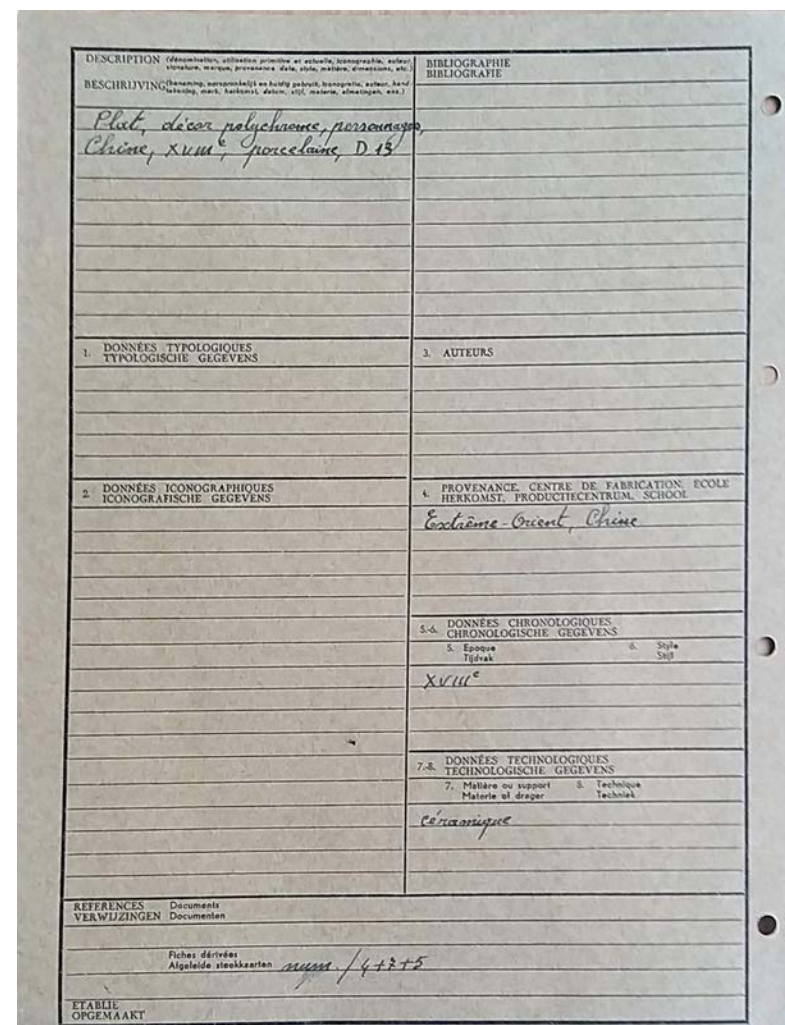 DESCRIPTION (dénomination, utilisation primitive et actuelle, iconographie, auteur,
signature, marque, provenance date, style, matière, dimensions, etc.)
BESCHRIJVING (benaming, oorspronkelijk en huidig gebruik, iconografie, auteur, hand-
tekening, merk, herkomst, datum, stijl, materie, afmetingen, enz.)
Plat, décor polychrome, personnages,
Chine, XVIIIe, porcelaine, D 13
BIBLIOGRAPHIE
BIBLIOGRAFIE
1. DONNÉES TYPOLOGIQUES
TYPOLOGISCHE GEGEVENS
3. AUTEURS
2. DONNÉES ICONOGRAPHIQUES
ICONOGRAFISCHE GEGEVENS
4. PROVENANCE, CENTRE DE FABRICATION, ECOLE
HERKOMST, PRODUCTIECENTRUM, SCHOOL
Extrême-Orient, Chine
5.-6. DONNÉES CHRONOLOGIQUES
CHRONOLOGISCHE GEGEVENS
5. Epoque 6. Style
Tijdvak Stijl
XVIIIe
7.-8. DONNÉES TECHNOLOGIQUES
TECHNOLOGISCHE GEGEVENS
7. Matière ou support 8. Technique
Materie of drager Techniek
céramique
REFERENCES Documents
VERWIJZINGEN Documenten
Fiches dérivées
Afgeleide steekkaarten num. / 4+7+5
ETABLIE
OPGEMAAKT